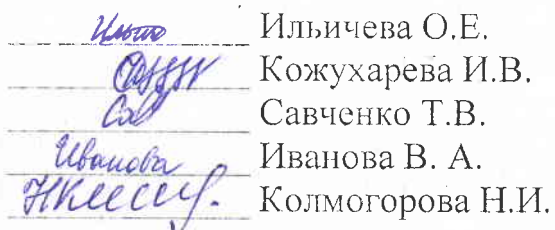 Ильичева О.Е.
Кожухарева И.В.
Савченко Т.В.
Иванова Иванова В. А.
Колмогорова Н.И.